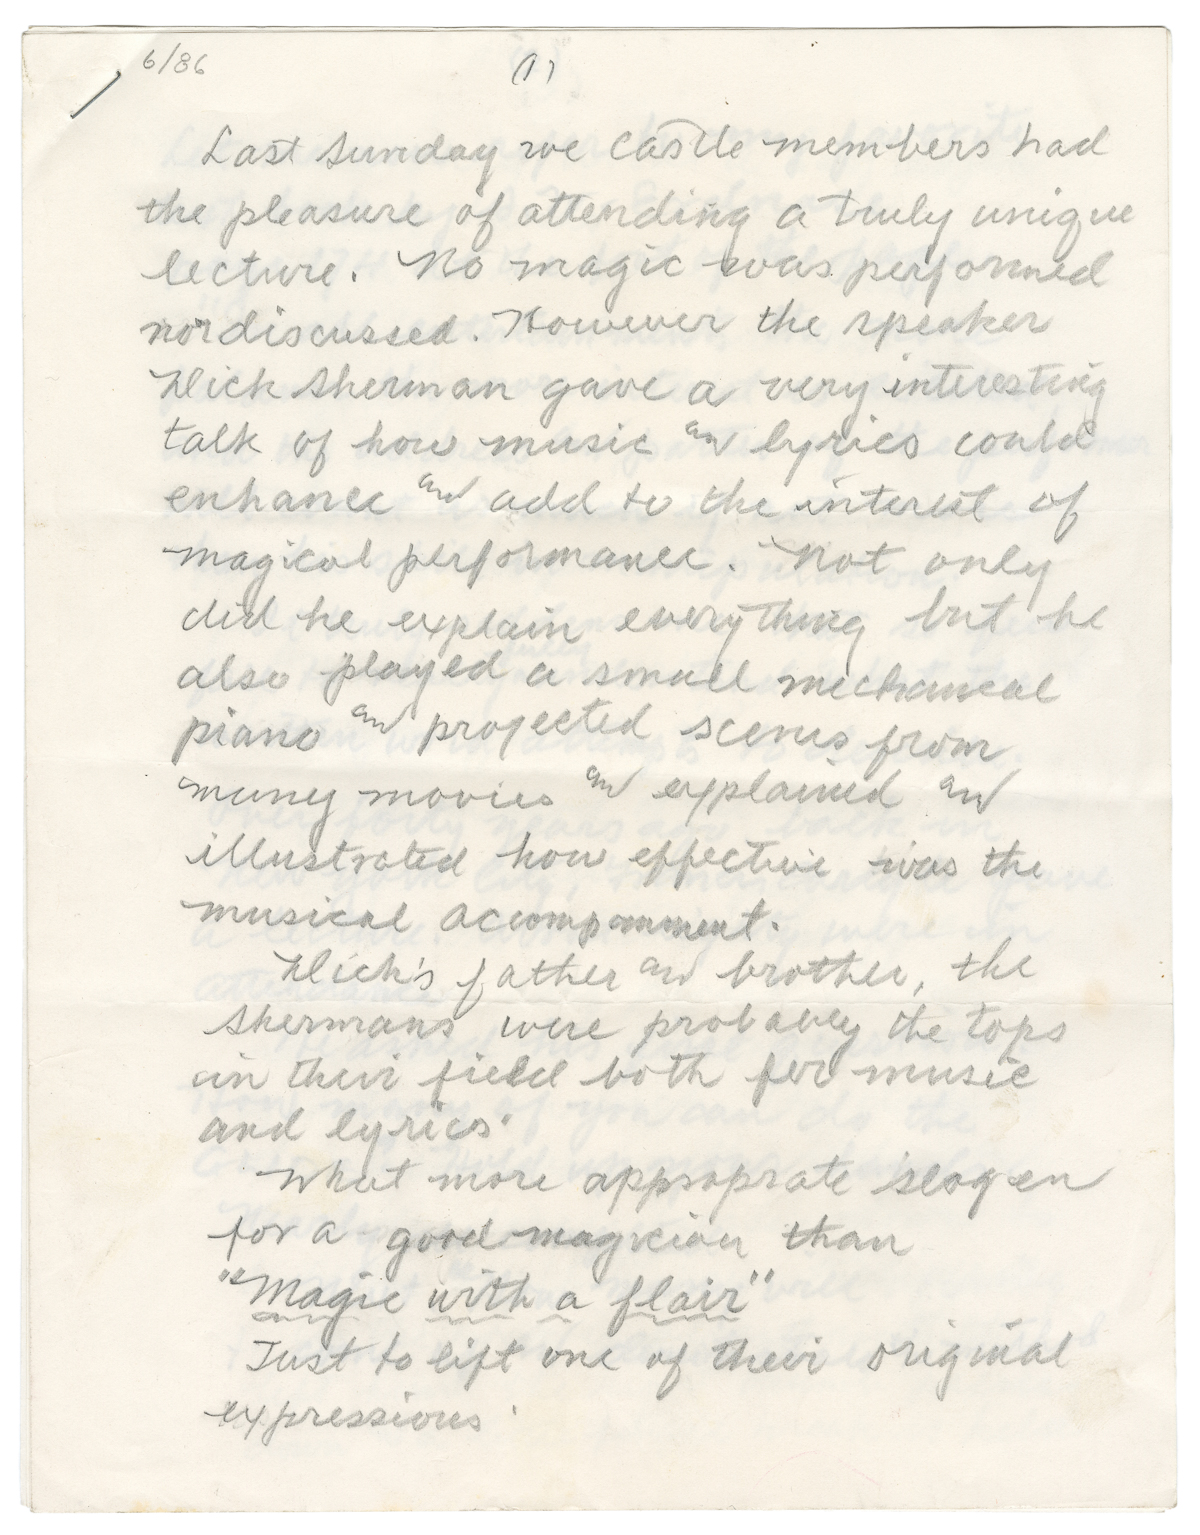 6/86
(1)
Last Sunday we Castle members had
the pleasure of attending a truly unique
lecture. No magic was performed
nor discussed. However the speaker
Dick Sherman gave a very interesting
talk of how music and lyrics could
enhance and add to the interest of
magical performance. Not only
did he explain everything but he
also played a small mechanical
piano and projected scenes from
many movies and explained and
illustrated how effective was the
musical acompanment.
Dick's father and brother, the
Shermans were probably the tops
in their field both for music
and lyrics.
What more approprate slogen
for a good magician than
"Magic with a flair"
Just to lift one of their original
expressions.